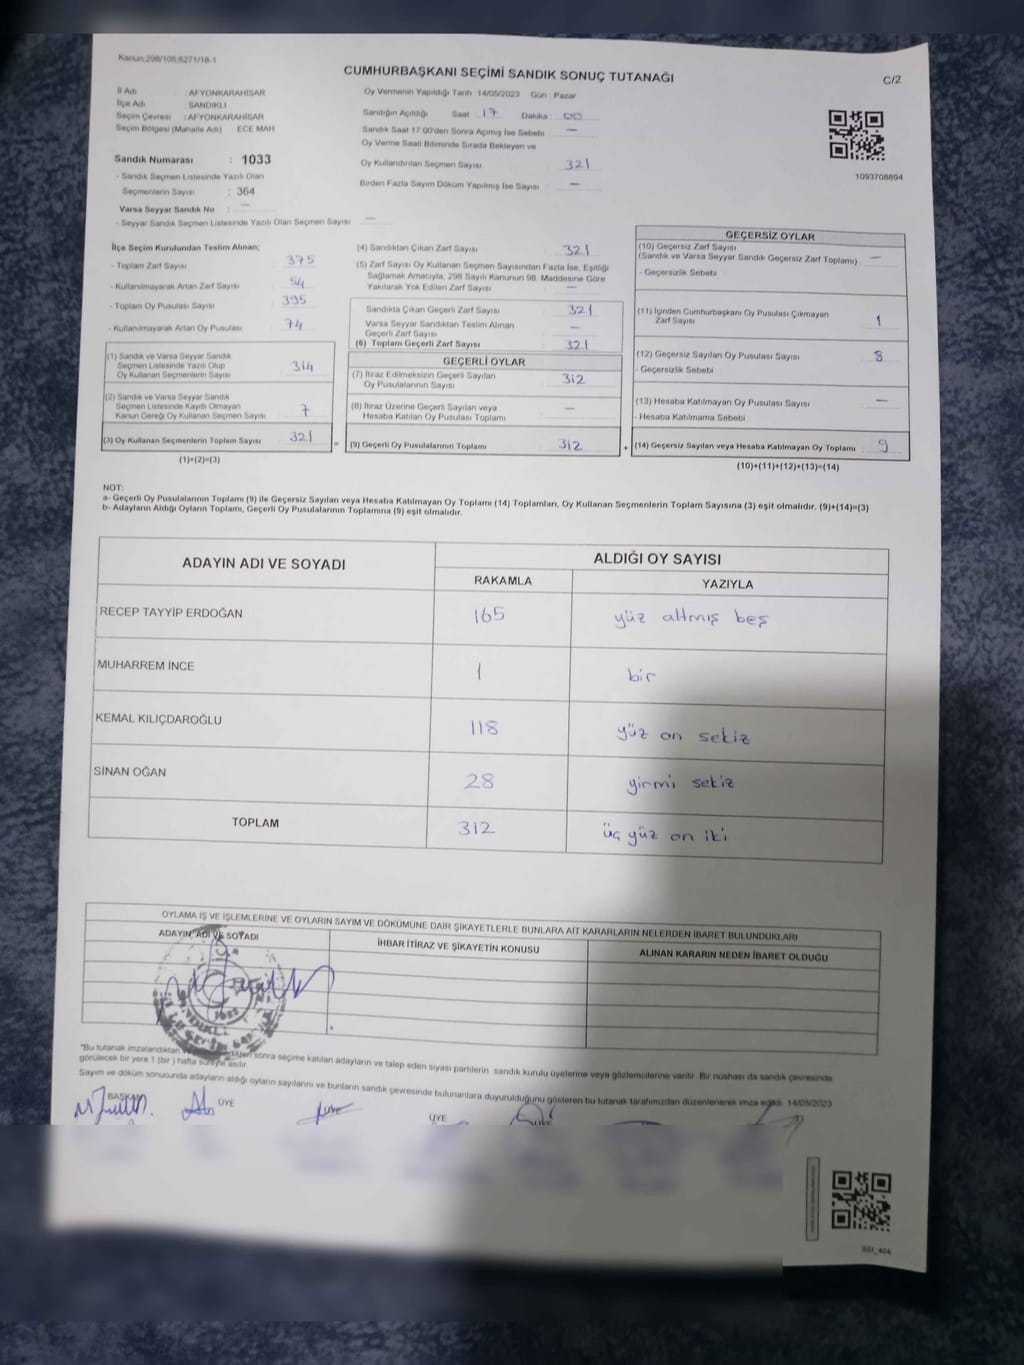 Kanun:298/105,6271/18-1
CUMHURBAŞKANI SEÇİMİ SANDIK SONUÇ TUTANAĞI
C/2
İl Adı : AFYONKARAHİSAR
İlçe Adı : SANDIKLI
Seçim Çevresi : AFYONKARAHİSAR
Seçim Bölgesi (Mahalle Adı) ECE MAH
Sandık Numarası : 1033
- Sandık Seçmen Listesinde Yazılı Olan
Seçmenlerin Sayısı : 364
Varsa Seyyar Sandık No : —
- Seyyar Sandık Seçmen Listesinde Yazılı Olan Seçmen Sayısı : —
Oy Vermenin Yapıldığı Tarih 14/05/2023 Gün : Pazar
Sandığın Açıldığı Saat 17 Dakika 00
Sandık Saat 17:00'den Sonra Açılmış İse Sebebi : —
Oy Verme Saati Bitiminde Sırada Bekleyen ve
Oy Kullandırılan Seçmen Sayısı : 321
Birden Fazla Sayım Döküm Yapılmış İse Sayısı : —
1093708894
İlçe Seçim Kurulundan Teslim Alınan;
- Toplam Zarf Sayısı : 375
- Kullanılmayarak Artan Zarf Sayısı : 54
- Toplam Oy Pusulası Sayısı : 395
- Kullanılmayarak Artan Oy Pusulası : 74
(1) Sandık ve Varsa Seyyar Sandık
Seçmen Listesinde Yazılı Olup
Oy Kullanan Seçmenlerin Sayısı : 314
(2) Sandık ve Varsa Seyyar Sandık
Seçmen Listesinde Kayıtlı Olmayan
Kanun Gereği Oy Kullanan Seçmen Sayısı : 7
(3) Oy Kullanan Seçmenlerin Toplam Sayısı : 321
(1)+(2)=(3)
(4) Sandıktan Çıkan Zarf Sayısı : 321
(5) Zarf Sayısı Oy Kullanan Seçmen Sayısından Fazla İse, Eşitliği
Sağlamak Amacıyla, 298 Sayılı Kanunun 98. Maddesine Göre
Yakılarak Yok Edilen Zarf Sayısı : —
Sandıkta Çıkan Geçerli Zarf Sayısı : 321
Varsa Seyyar Sandıktan Teslim Alınan
Geçerli Zarf Sayısı : —
(6) Toplam Geçerli Zarf Sayısı : 321
GEÇERLİ OYLAR
(7) İtiraz Edilmeksizin Geçerli Sayılan
Oy Pusulalarının Sayısı : 312
(8) İtiraz Üzerine Geçerli Sayılan veya
Hesaba Katılan Oy Pusulası Toplamı : —
= (9) Geçerli Oy Pusulalarının Toplamı : 312 +
GEÇERSİZ OYLAR
(10) Geçersiz Zarf Sayısı
(Sandık ve Varsa Seyyar Sandık Geçersiz Zarf Toplamı) : —
- Geçersizlik Sebebi :
(11) İçinden Cumhurbaşkanı Oy Pusulası Çıkmayan
Zarf Sayısı : 1
(12) Geçersiz Sayılan Oy Pusulası Sayısı : 8
- Geçersizlik Sebebi :
(13) Hesaba Katılmayan Oy Pusulası Sayısı : —
- Hesaba Katılmama Sebebi :
(14) Geçersiz Sayılan veya Hesaba Katılmayan Oy Toplamı : 9
(10)+(11)+(12)+(13)=(14)
NOT:
a- Geçerli Oy Pusulalarının Toplamı (9) ile Geçersiz Sayılan veya Hesaba Katılmayan Oy Toplamı (14) Toplamları, Oy Kullanan Seçmenlerin Toplam Sayısına (3) eşit olmalıdır. (9)+(14)=(3)
b- Adayların Aldığı Oyların Toplamı, Geçerli Oy Pusulalarının Toplamına (9) eşit olmalıdır.
ADAYIN ADI VE SOYADI
ALDIĞI OY SAYISI
RAKAMLA YAZIYLA
RECEP TAYYİP ERDOĞAN 165 yüz altmış beş
MUHARREM İNCE 1 bir
KEMAL KILIÇDAROĞLU 118 yüz on sekiz
SİNAN OĞAN 28 yirmi sekiz
TOPLAM 312 üç yüz on iki
OYLAMA İŞ VE İŞLEMLERİNE VE OYLARIN SAYIM VE DÖKÜMÜNE DAİR ŞİKAYETLERLE BUNLARA AİT KARARLARIN NELERDEN İBARET BULUNDUKLARI
ADAYIN ADI VE SOYADI
İHBAR İTİRAZ VE ŞİKAYETİN KONUSU
ALINAN KARARIN NEDEN İBARET OLDUĞU
SANDIKLI
"Bu tutanak imzalandıktan sonra seçime katılan adayların ve talep eden siyasi partilerin sandık kurulu üyelerine veya gözlemcilerine verilir. Bir nüshası da sandık çevresinde
görülecek bir yere 1 (bir ) hafta süreyle asılır.
Sayım ve döküm sonucunda adayların aldığı oyların sayılarını ve bunların sandık çevresinde bulunanlara duyurulduğunu gösteren bu tutanak tarafımızdan düzenlenerek imza edildi. 14/05/2023
BAŞKAN ÜYE ÜYE ÜYE ÜYE